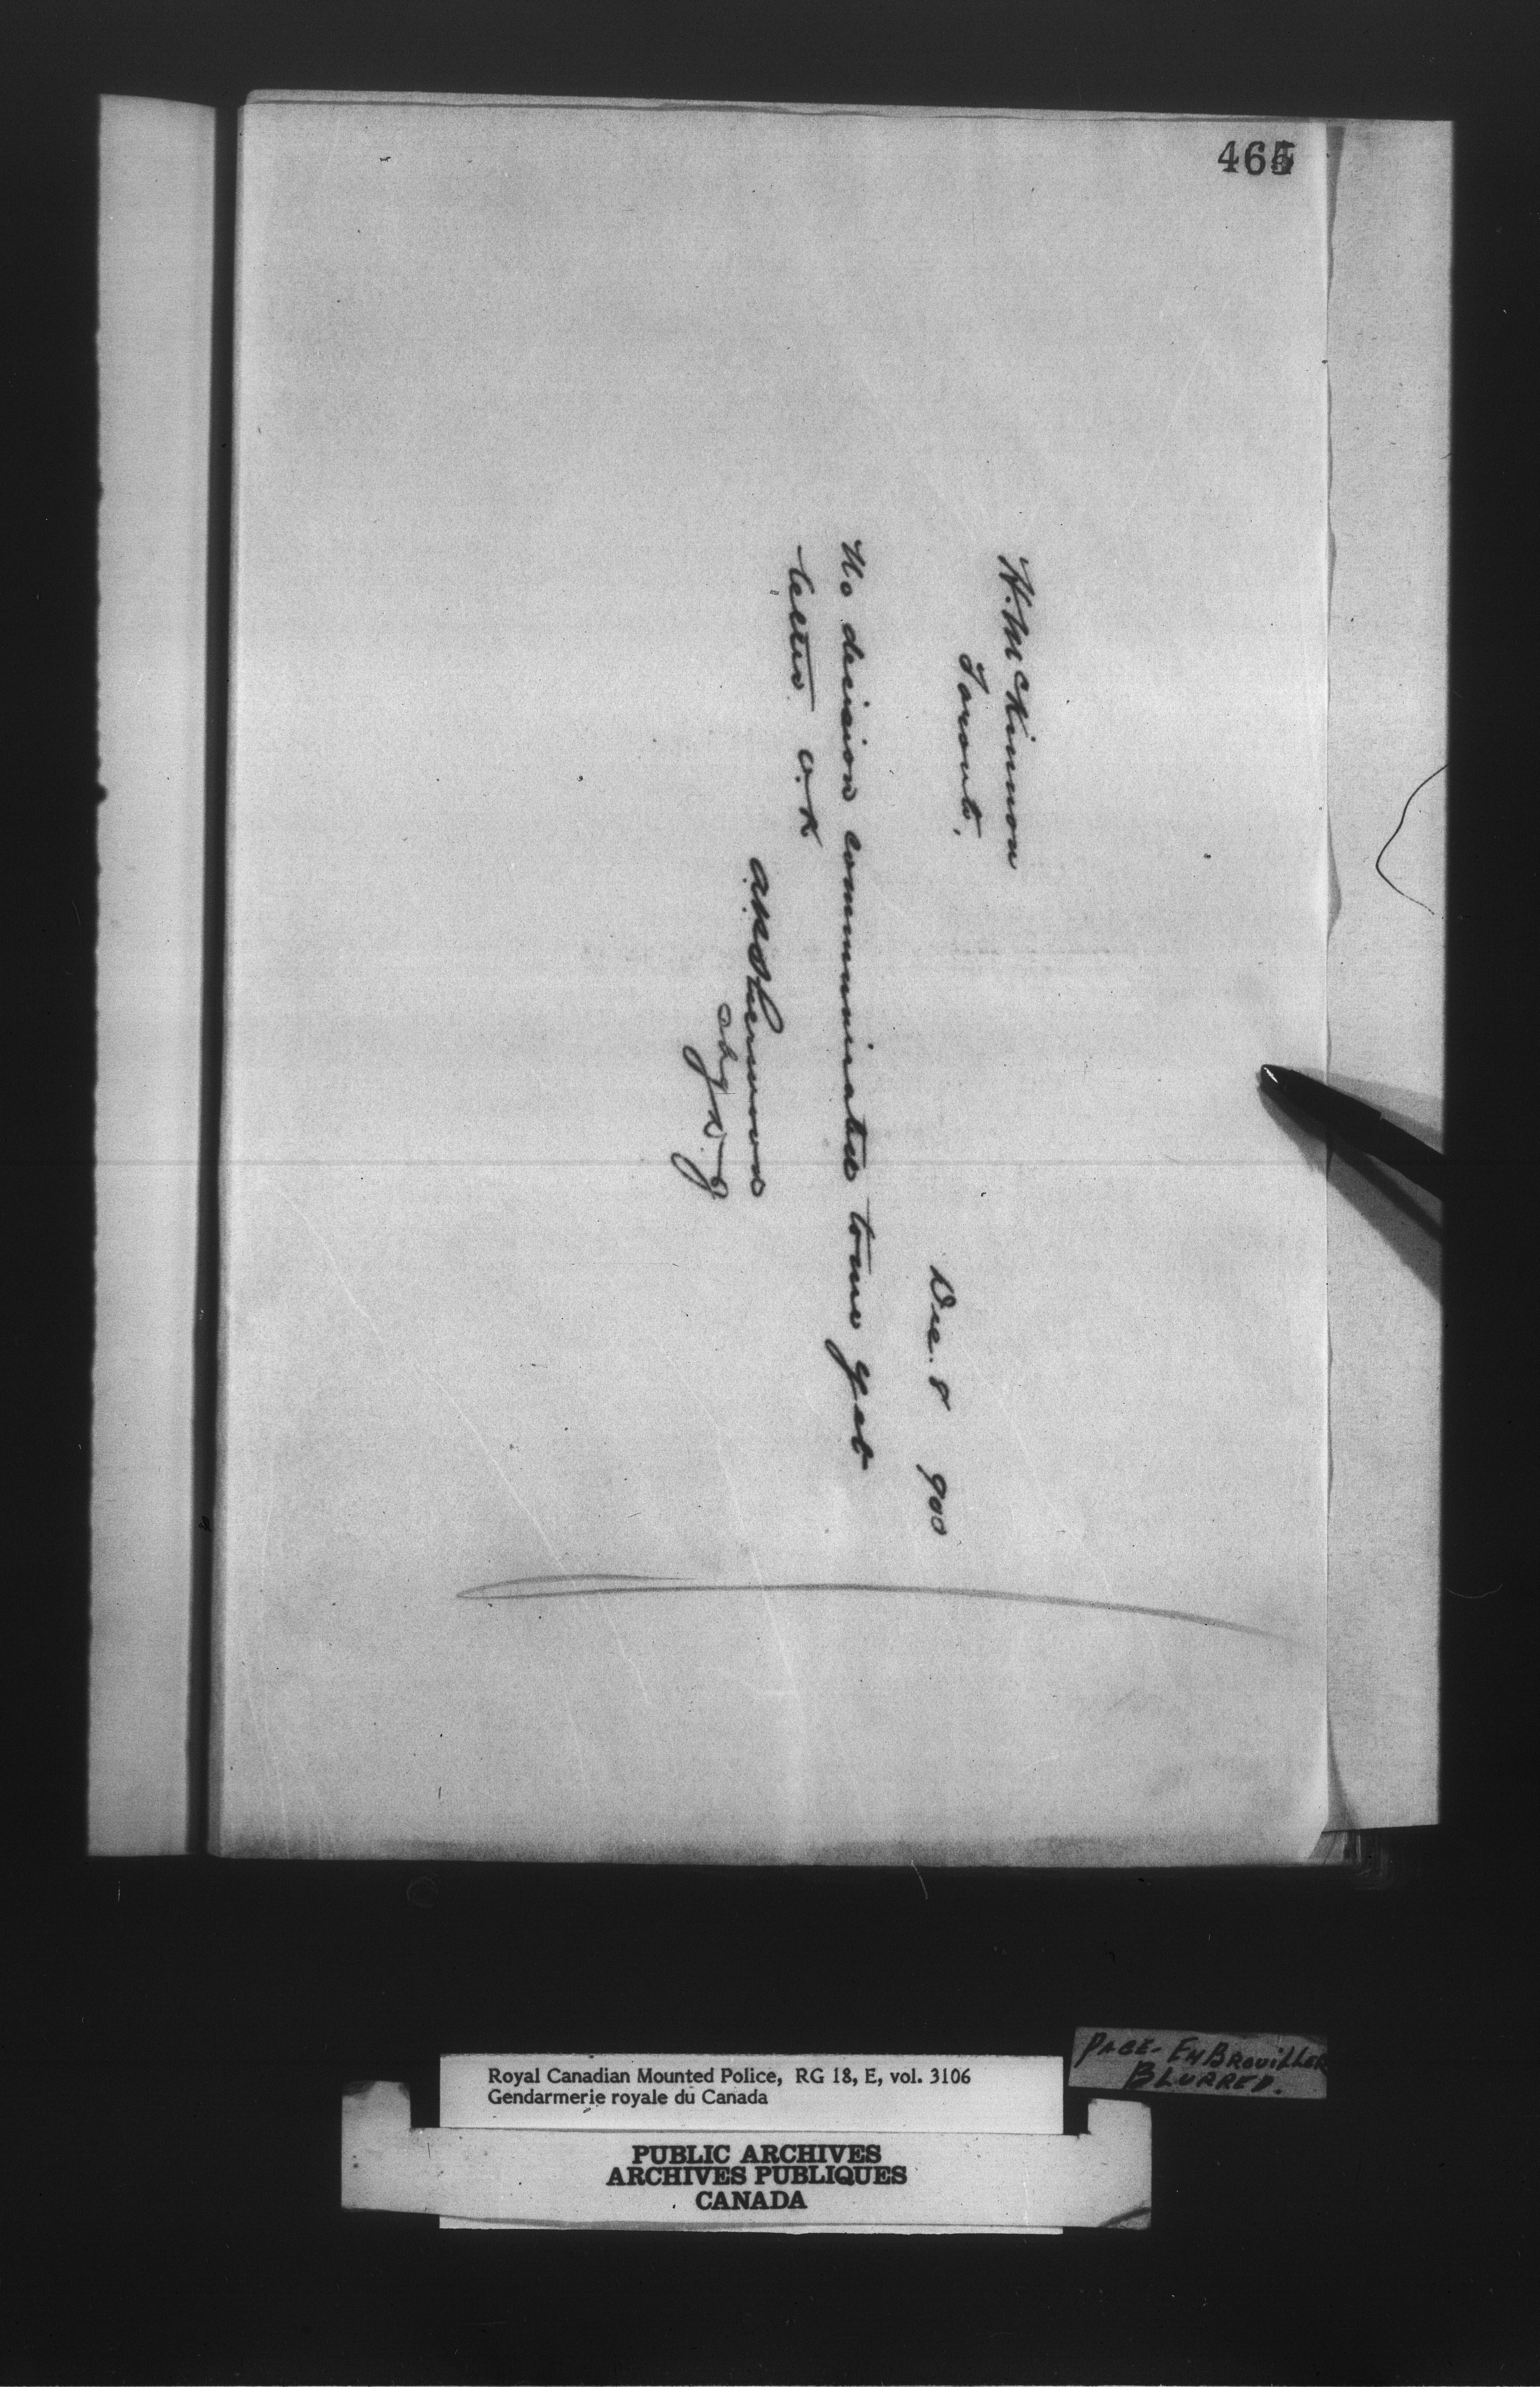 465
Dec. 8 900
H. McKinnon
Toronto,
No decision communicated to me yet
letter O.K
A P Sherwood
Royal Canadian Mounted Police, RG 18, E, vol. 3106
Gendarmerie royale du Canada
PUBLIC ARCHIVES
ARCHIVES PUBLIQUES
CANADA
PAGE - EMBROUILLER
BLURRED.